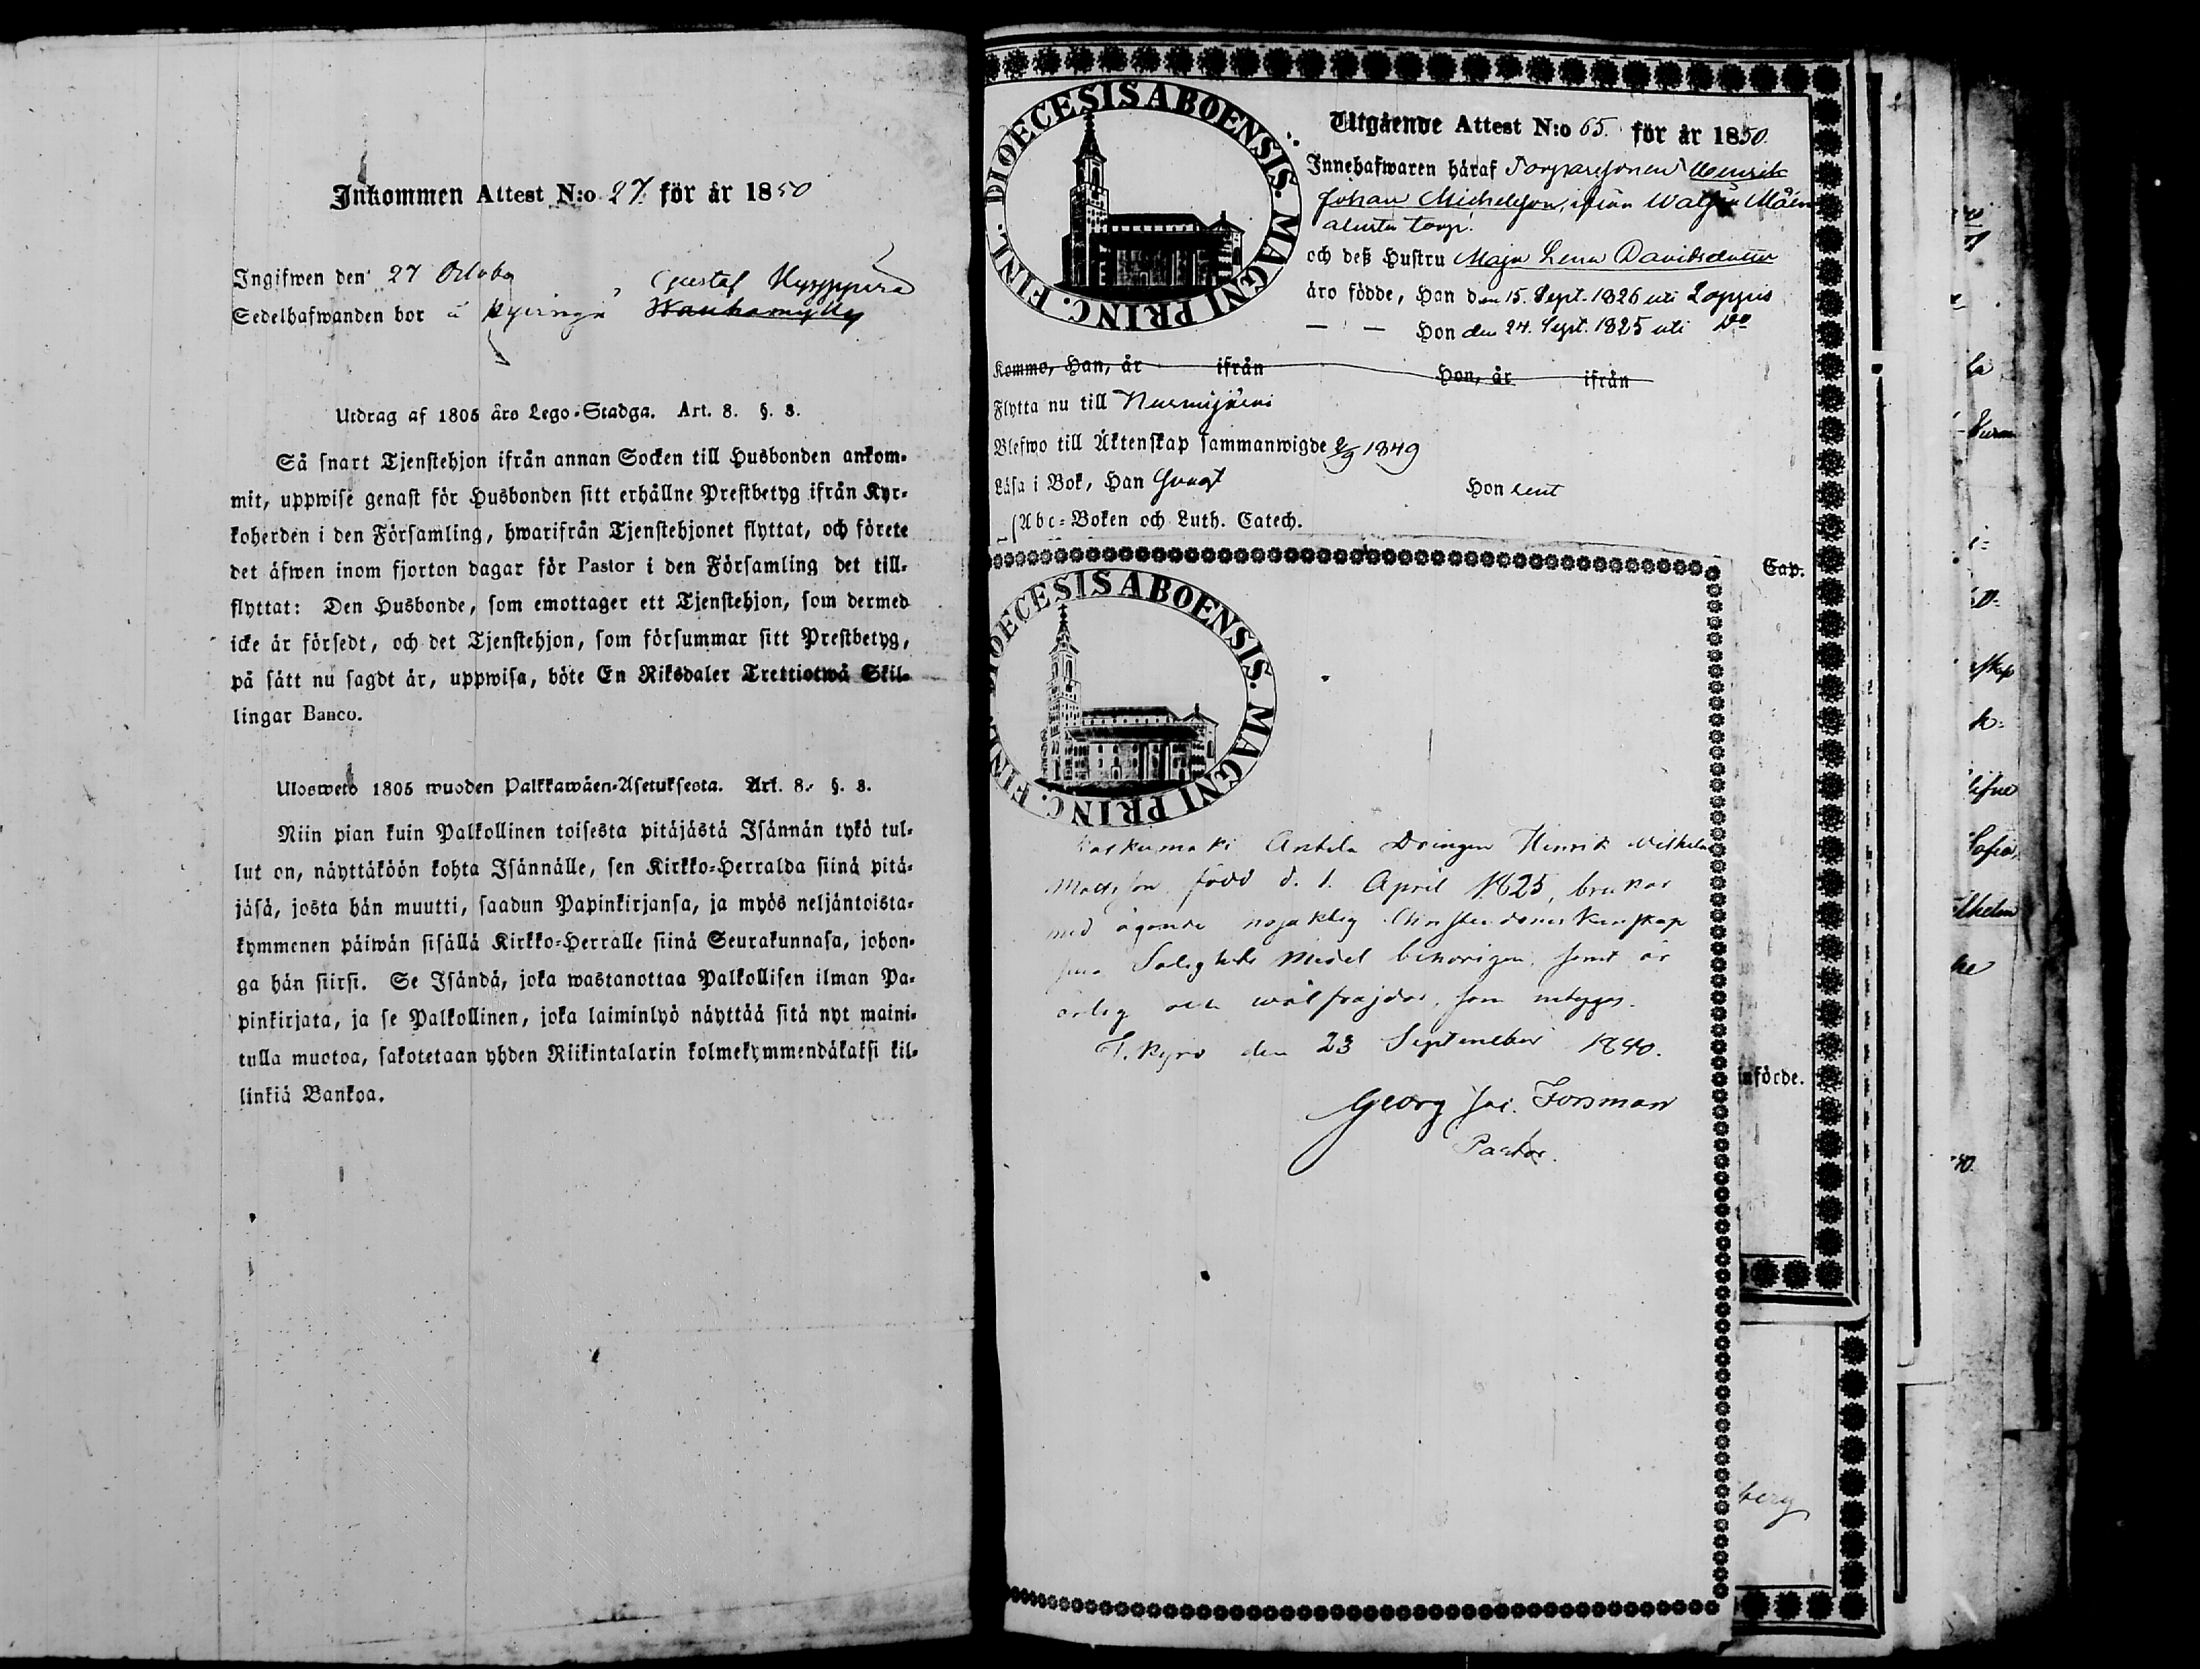 Inkommen Attest N:o 27. för år 1850
Ingifwen den 27 October
Sedelhafwanden bor i Gustaf
Utdrag af 1805 års Lego-Stadga. Art. 8. §. 8.
Så snart Tjenstehjon ifrån annan Socken till Husbonden ankom-
mit, uppwise genast för Husbonden sitt erhållne Prestbetyg ifrån Kyr-
koherden i den Församling, hwarifrån Tjenstehjonet flyttat, och förete
det äfwen inom fjorton dagar för Pastor i den Församling det till-
flyttat: Den Husbonde, som emottager ett Tjenstehjon, som dermed
icke är försedt, och det Tjenstehjon, som försummar sitt Prestbetyg,
på sätt nu sagdt är, uppwisa, böte En Riksdaler Trettiotwå Skil-
lingar Banco.
Ulosweto 1805 wuoden Palkkawäen-Asetuksesta. Art. 8. §. 8.
Niin pian kuin Palkollinen toisesta pitäjästä Isännän tykö tul-
lut on, näyttäköön kohta Isännälle, sen Kirkko-Herralda siinä pitä-
jäsä, josta hän muutti, saadun Papinkirjansa, ja myös neljäntoista-
kymmenen päiwän sisällä Kirkko-Herralle siinä Seurakunnasa, johon-
ga hän siirsi. Se Isändä, joka wastanottaa Palkollisen ilman Pa-
pinkirjata, ja se Palkollinen, joka laiminlyö näyttää sitä nyt maini-
tulla muotoa, sakotetaan yhden Riikintalarin kolmekymmendäkaksi kil-
linkiä Bankoa.
DIOECESIS ABOENSIS. MAGNI PRINC. FINL.
Utgående Attest N:o 65. för år 1850.
Innehafwaren häraf Torparesonen Henrik
Johan Michelsson, ifrån
torp.
och deß Hustru Maja Lena Davidsdotter
äro födde, Han den 15. Sept. 1826 uti Loppis
Hon den 24. Sept. 1825 uti Do
Komme, Han, år ifrån Hon, år ifrån
Flytta nu till Nurmijärvi
Blefwo till Äktenskap sammanwigde 2/9 1849
Läsa i Bok, Han Svagt Hon Lent
Abc-Boken och Luth. Catech.
Cap.
DIOECESIS ABOENSIS. MAGNI PRINC. FIN
Antila Drängen Henrik Vilhelm
Mattsson född d. 1. April 1825, brukar
med ägande nöjaktig Christendomskunskap
sina Salighets Medel behörigen, samt är
ärlig och wälfräjdad, som intygas.
T. Kyro den 23 September 1850.
Georg Jac. Forsman
Pastor.
införde.
berg